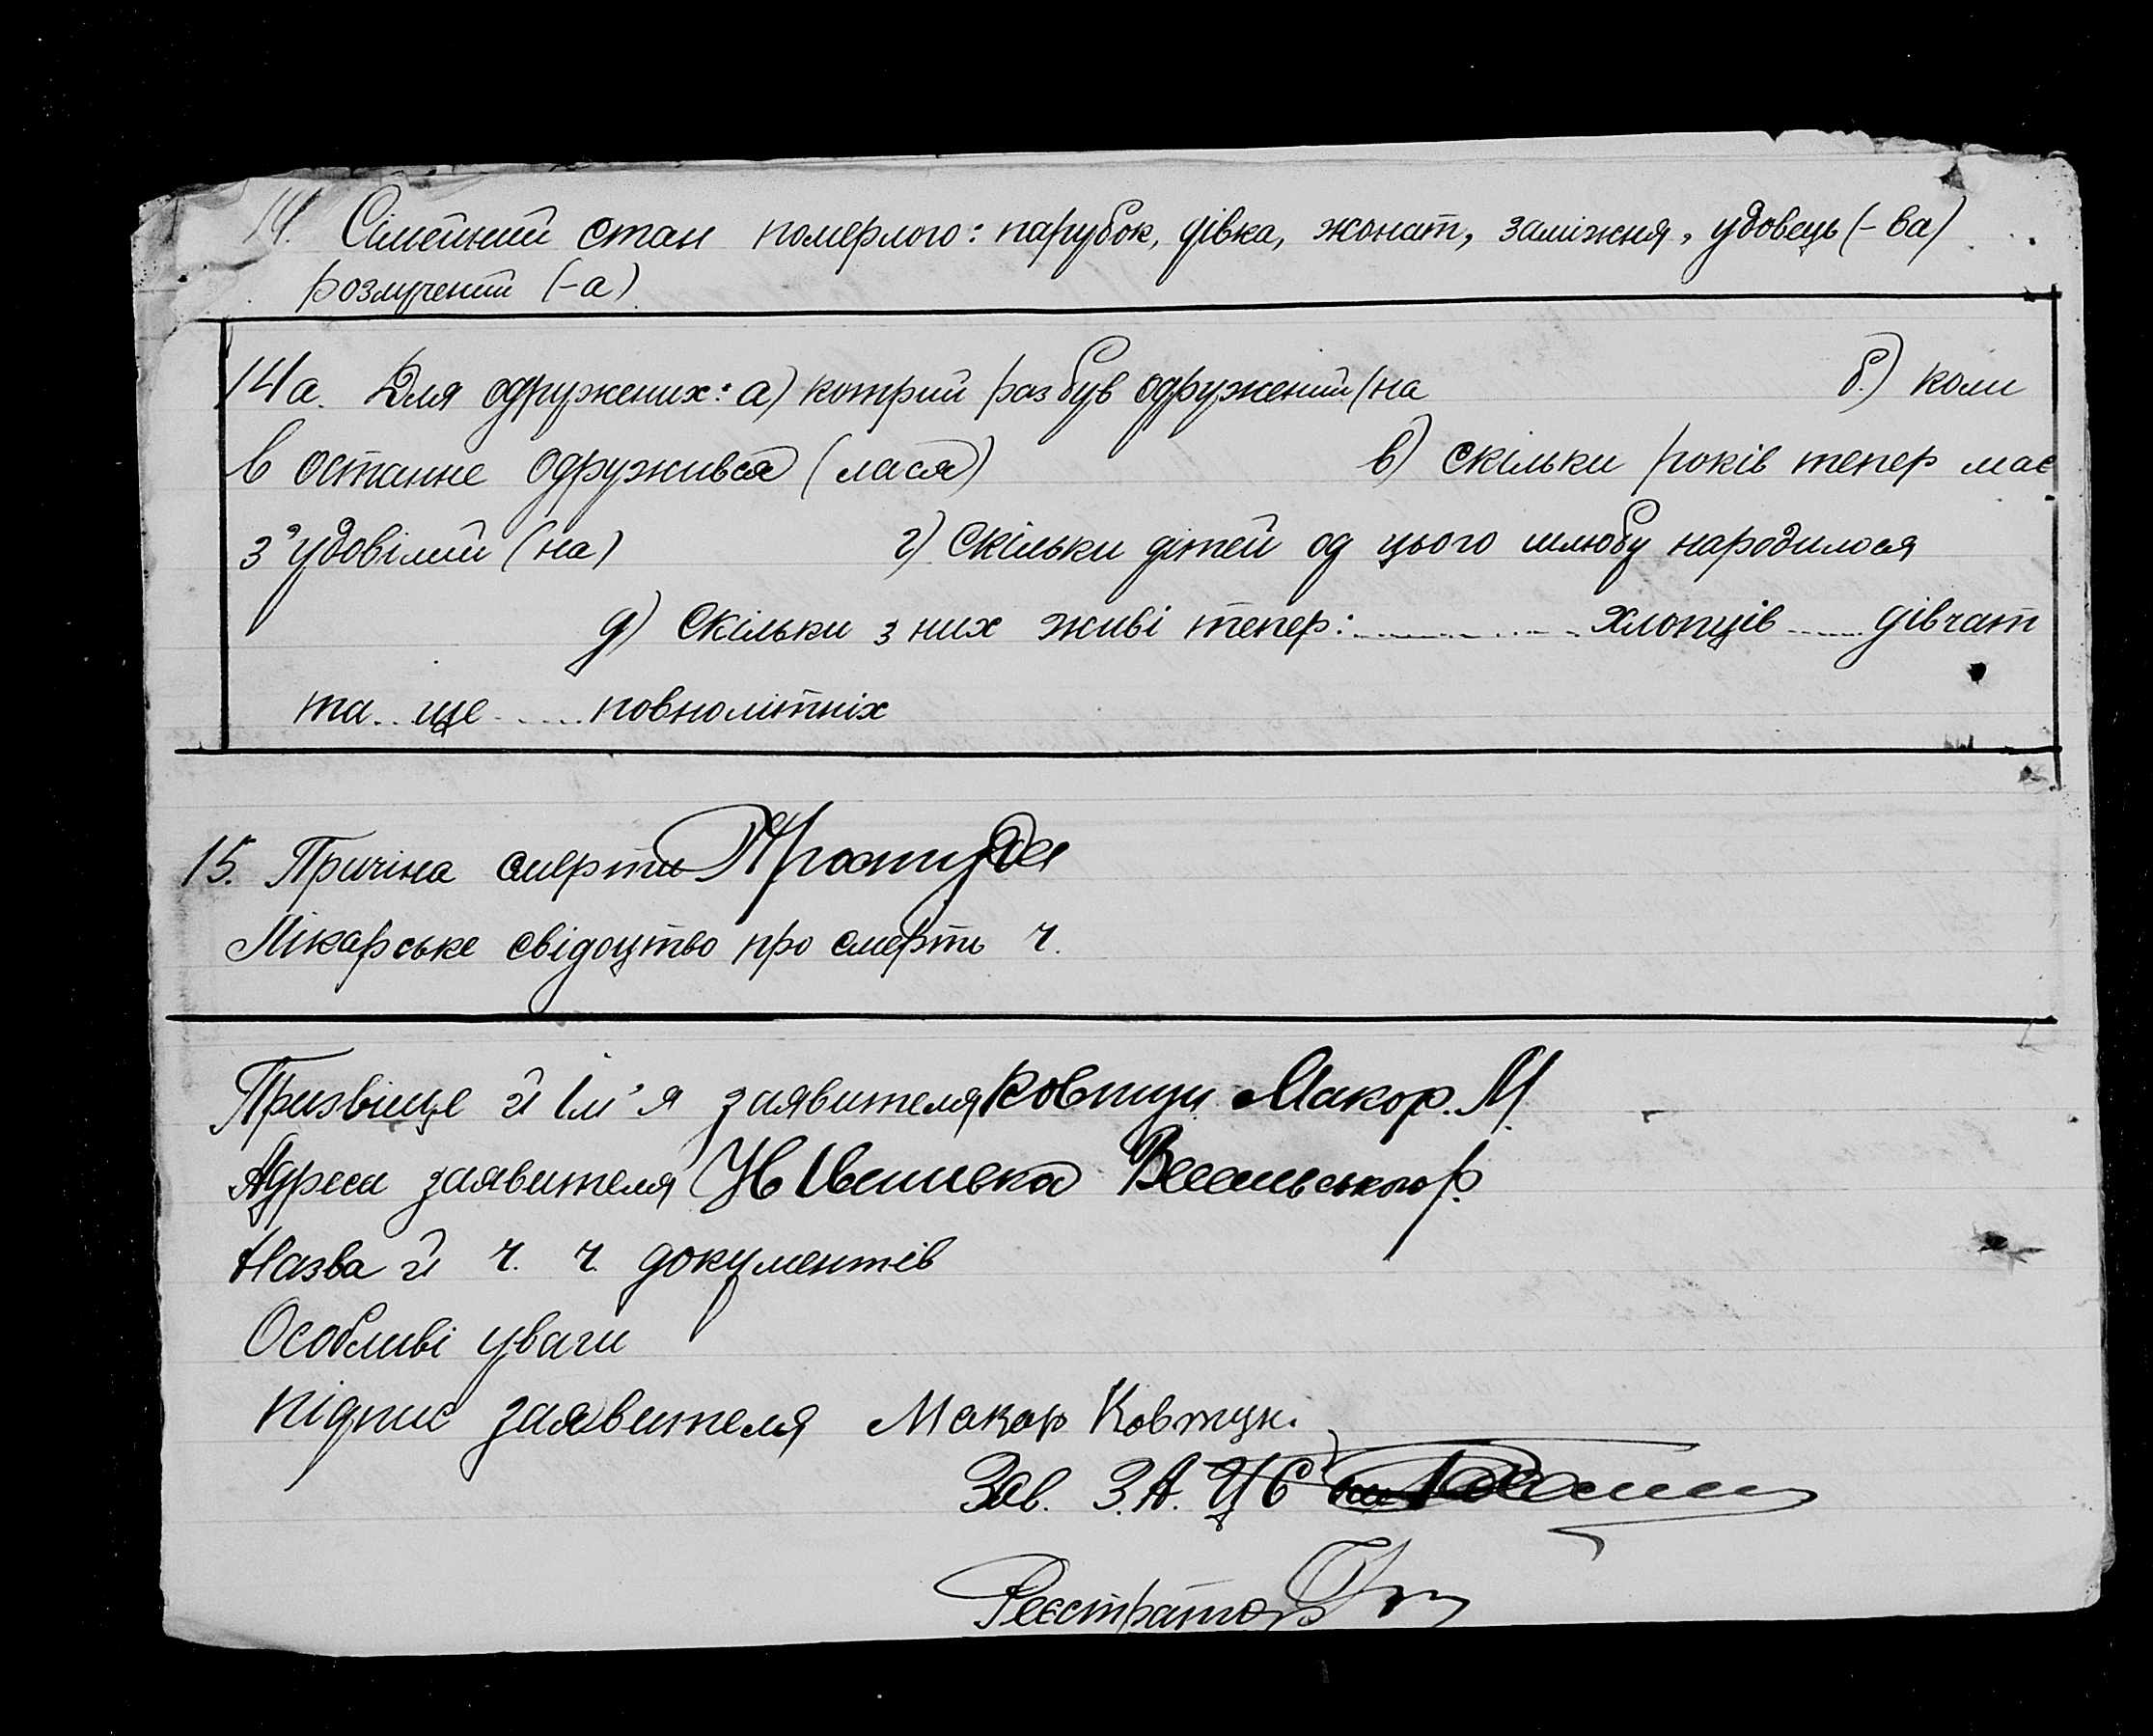 14. Сімейний стан померлого: парубок, дівка, жонат, заміжня, удовець (-ва)
розлучений (-а)
14а. Для одружених: а) котрий раз був одружений (на б.) коли
в останнє одружився (лася) в) скільки років тепер має
з"удовілий (на) г) Скільки дітей од цього шлюбу народилося
д) Скільки з них живі тепер: хлопців дівчат
та ще повнолітніх
15. Причіна смерти Простуда
Лікарське свідоцтво про смерть ч.
Призвіще й Ім'я заявителя Ковтун Макор. М.
Адреса заявителя
Назва й ч. ч. документів
Особливі уваги
підпис заявителя Макар Ковтун.
Зав. З.А.ЦС
Реєстратор